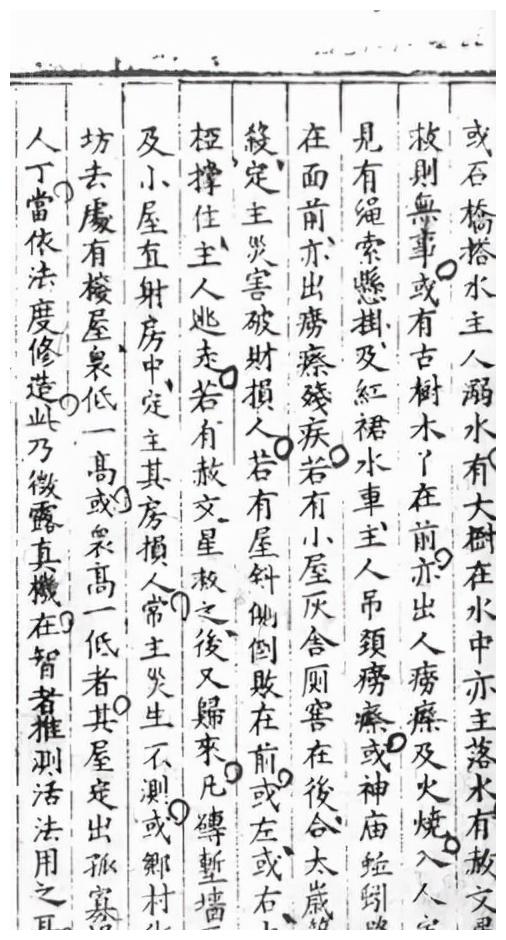 或石橋搭水主人溺水有大樹在水中亦主落水有赦文星
救則無事或有古樹木丫在前亦出人癆瘵及火燒入人
見有绳索懸掛及紅裙水車主人吊頸癆瘵或神庙蚯蚓路
在面前亦出癆瘵殘疾若有小屋灰舍厕窖在後合太歲
殺定主災害破財損人若有屋斜側倒敗在前或左或右
椏撑住主人逃走若有赦文星救之後又歸來凡磚塹墻
及小屋直射房中定主其房損人常主災生不測或鄉村
坊去處有接屋衆低一高或衆高一低者其屋定出孤寡
人丁當依法度修造此乃微露真機在智者推測活法用之耳